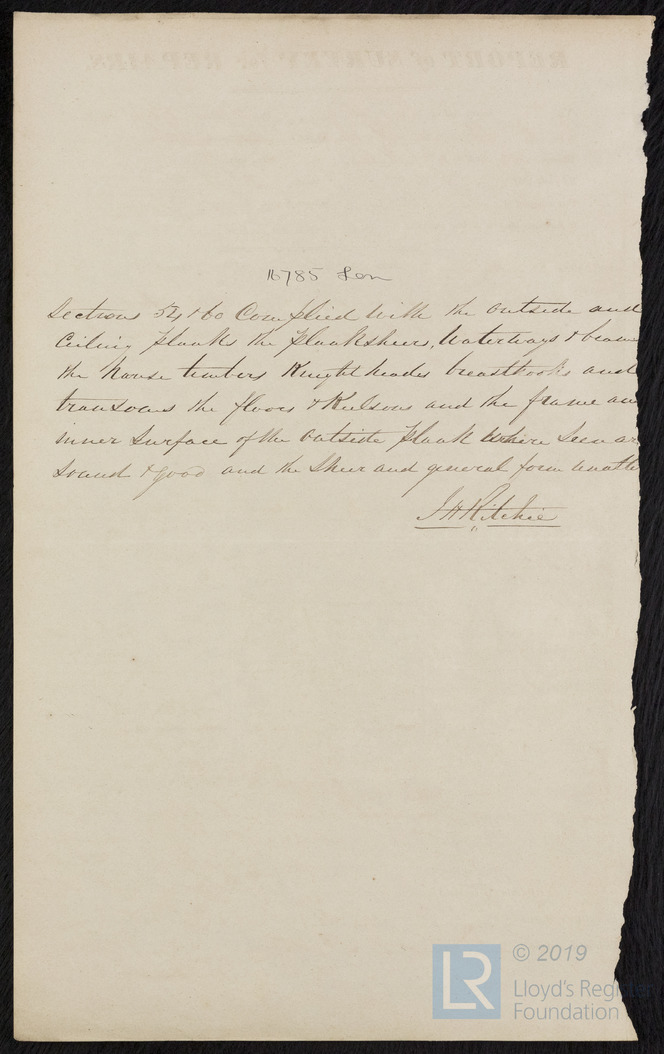 REPORT of SURVEY for REPAIRS,
16785 Lon
Sections 54 & 60 Complied With the outside and
Ceiling planks the planksheers, Waterways & beams
the hawse timbers Knightheads breasthooks and
transoms the floors & Keelsons and the frame an
inner Surface of the outside plank where Seen ar
Sound & good and the Sheer and general form unalt
J H Ritchie
LR
© 2019
Lloyd's Register
Foundation